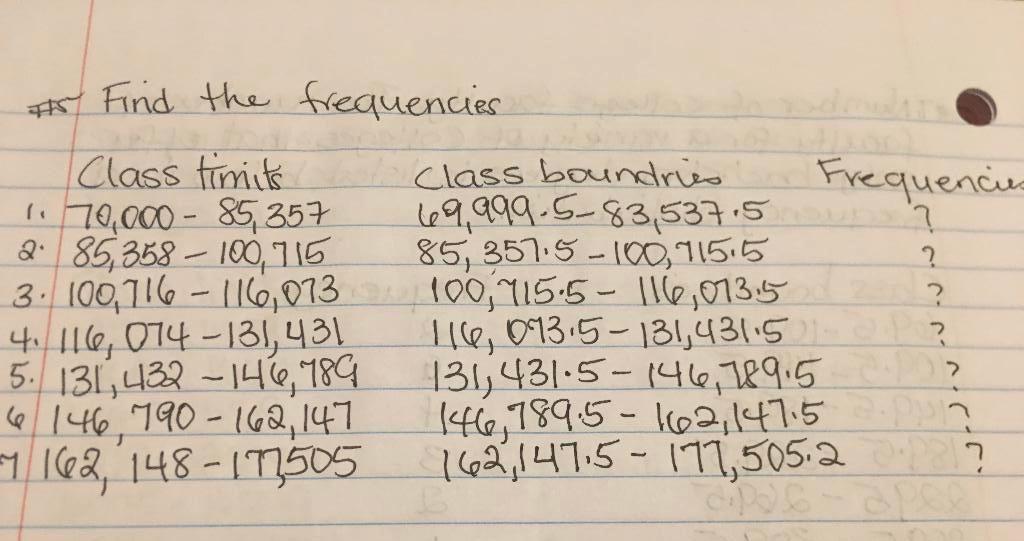 #5 Find the frequencies
Class limits Class boundries Frequencies
1. 70,000 - 85,357 69,999.5 - 83,537.5 ?
2. 85,358 - 100,715 85,357.5 - 100,715.5 ?
3. 100,716 - 116,073 100,715.5 - 116,073.5 ?
4. 116,074 - 131,431 116,073.5 - 131,431.5 ?
5. 131,432 - 146,789 131,431.5 - 146,789.5 ?
6 146,790 - 162,147 146,789.5 - 162,147.5 ?
7 162,148 - 177,505 162,147.5 - 177,505.2 ?